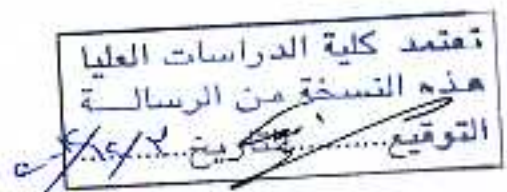 تعتمد كلية الدراسات العليا
هذه النسخة من الرسالــة
التوقيع.........التاريخ.........